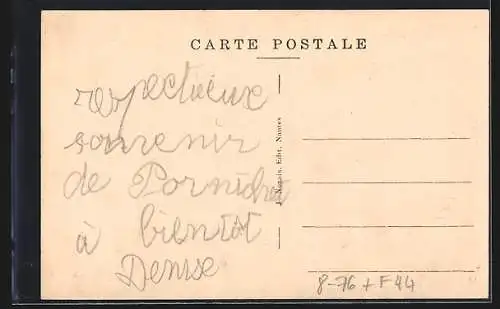 CARTE POSTALE
respectueux
souvenir
de Pornichet
à bientôt
Denise
Edit. Nantes
8-76 + F 44